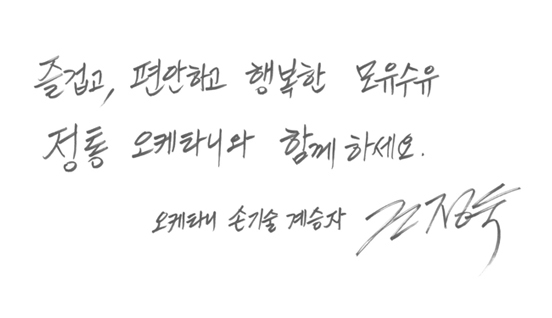 즐겁고, 편안하고 행복한 모유수유
정통 오케타니와 함께 하세요.
오케타니 손기술 계승자